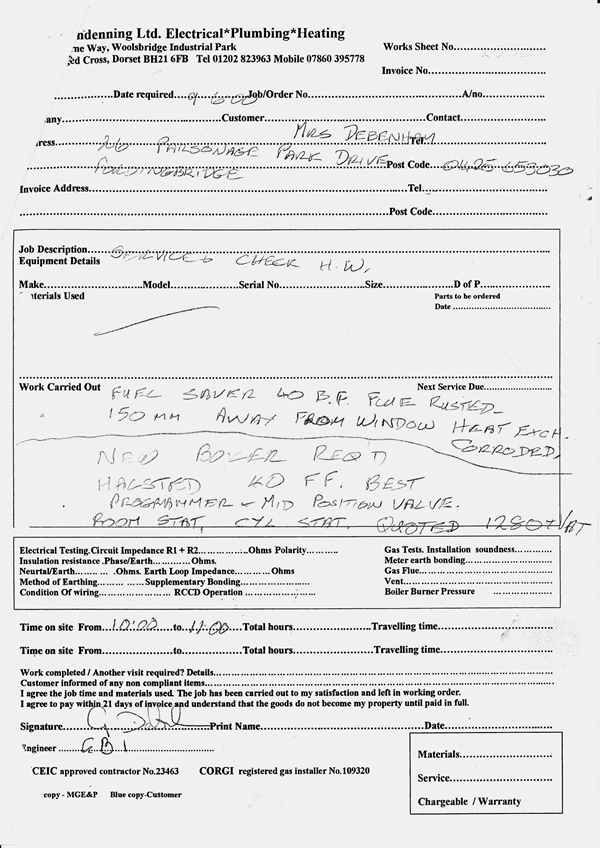 ndenning Ltd. Electrical*Plumbing*Heating
ne Way, Woolsbridge Industrial Park
ed Cross, Dorset BH21 6FB Tel 01202 823963 Mobile 07860 395778
Works Sheet No
Invoice No
Date required 9 6 00 Job/Order No A/no
any Customer Contact
MRS DEBENHAM
ress 26 PARSONAGE PARK DRIVE Tel
FORDINGBRIDGE Post Code 01425 653030
Invoice Address Tel
Post Code
Job Description SERVICE + CHECK H.W,
Equipment Details
Make Model Serial No Size D of P
aterials Used Parts to be ordered
Date
Work Carried Out Next Service Due
FUEL SAVER 40 B.F. FLUE RUSTED
150 MM AWAY FROM WINDOW HEAT EXCH.
CORRODED,
NEW BOILER REQ'D
HALSTED 40 FF. BEST
PROGRAMMER - MID POSITION VALVE.
ROOM STAT, CYL STAT. QUOTED 1280 + VAT
Electrical Testing.Circuit Impedance R1 + R2 Ohms Polarity
Insulation resistance .Phase/Earth Ohms.
Neurtal/Earth .Ohms. Earth Loop Impedance Ohms
Method of Earthing Supplementary Bonding
Condition Of wiring RCCD Operation
Gas Tests. Installation soundness
Meter earth bonding
Gas Flue
Vent
Boiler Burner Pressure
Time on site From 10:00 to 11:00 Total hours Travelling time
Time on site From to Total hours Travelling time
Work completed / Another visit required? Details
Customer informed of any non compliant items
I agree the job time and materials used. The job has been carried out to my satisfaction and left in working order.
I agree to pay within 21 days of invoice and understand that the goods do not become my property until paid in full.
Signature Print Name Date
Engineer
CEIC approved contractor No.23463 CORGI registered gas installer No.109320
copy - MGE&P Blue copy-Customer
Materials
Service
Chargeable / Warranty